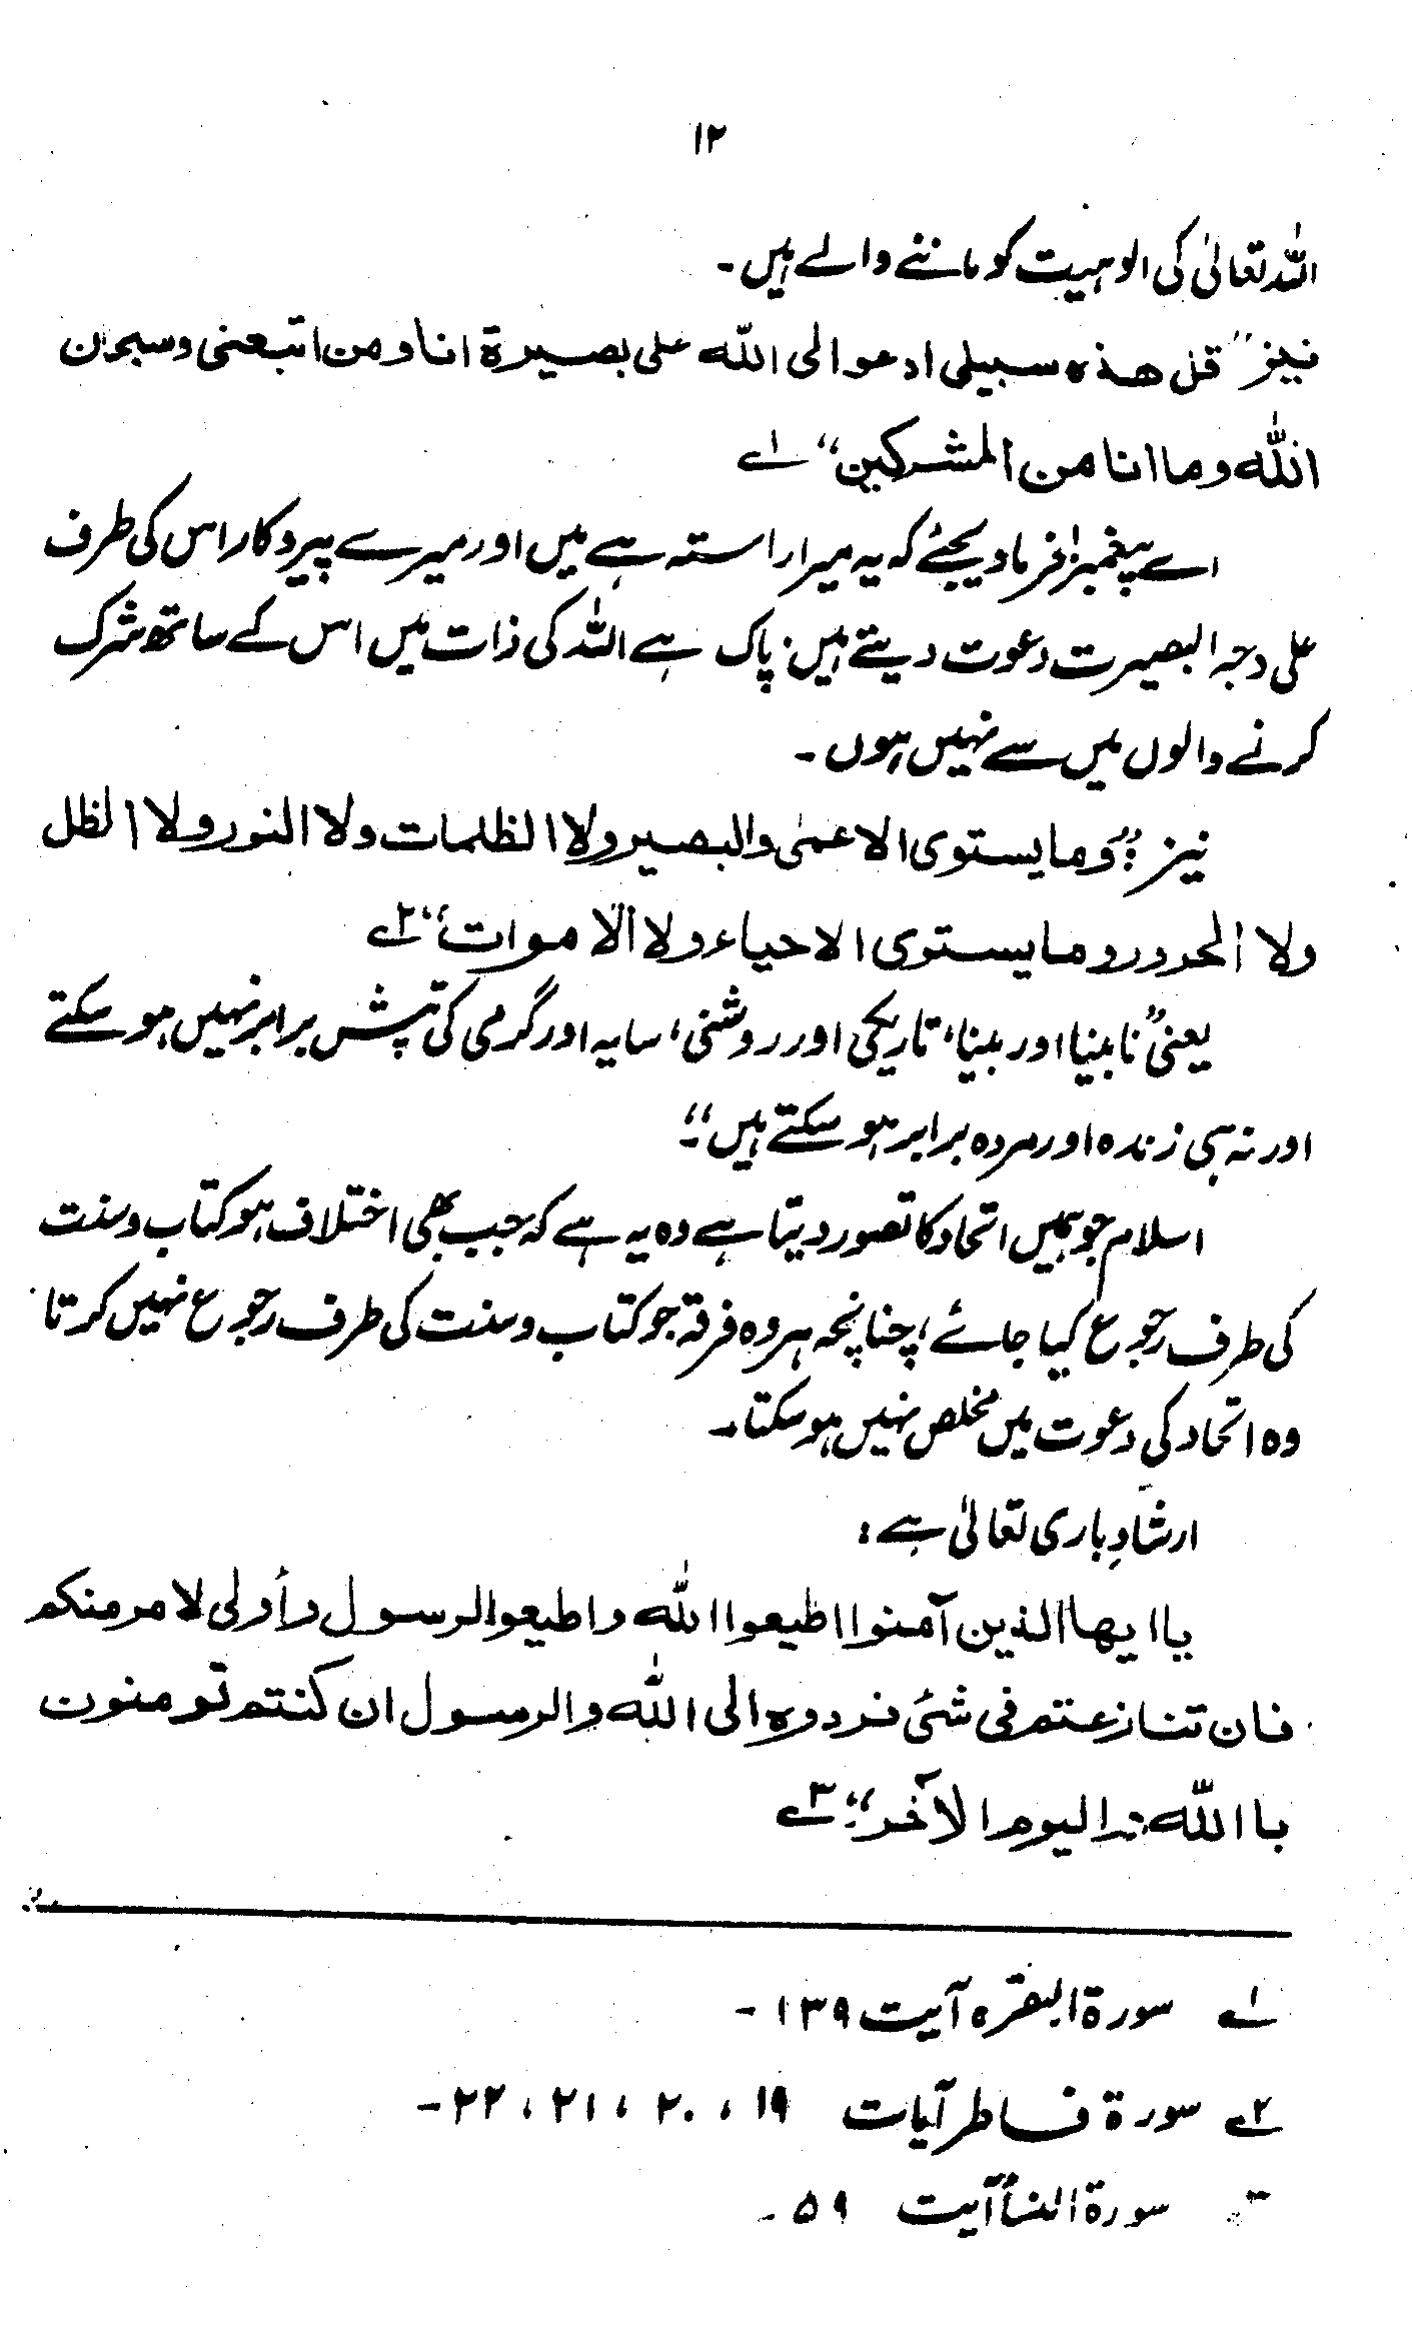 ۱۲
اللہ تعالیٰ کی الوہیت کو ماننے والے ہیں۔
نیز "قل هذه سبیلی ادعوا الی اللّٰه علی بصیرة انا ومن اتبعنی وسبحان
اللّٰه وما انا من المشرکین" ۱ے
اے پیغمبر! فرما دیجئے کہ یہ میرا راستہ ہے میں اور میرے پیروکار اس کی طرف
علی وجہ البصیرت دعوت دیتے ہیں۔ پاک ہے اللہ کی ذات میں اس کے ساتھ شرک
کرنے والوں میں سے نہیں ہوں۔
نیز: "وما یستوی الاعمیٰ والبصیر ولا الظلمات ولا النور ولا الظل
ولا الحرور وما یستوی الاحیاء ولا الاموات" ۲ے
یعنی "نابینا اور بینا، تاریکی اور روشنی، سایہ اور گرمی کی تپش برابر نہیں ہو سکتے
اور نہ ہی زندہ اور مردہ برابر ہو سکتے ہیں"۔
اسلام جو ہمیں اتحاد کا تصور دیتا ہے وہ یہ ہے کہ جب بھی اختلاف ہو کتاب و سنت
کی طرف رجوع کیا جائے، چنانچہ ہر وہ فرقہ جو کتاب و سنت کی طرف رجوع نہیں کرتا
وہ اتحاد کی دعوت میں مخلص نہیں ہو سکتا۔
ارشادِ باری تعالیٰ ہے:
یا ایها الذین آمنوا اطیعوا اللّٰه واطیعوا الرسول وأولی لامر منکم
فان تنازعتم فی شئی فردوه الی اللّٰه والرسول ان کنتم تومنون
باللّٰه والیوم الآخر"۔ ۳ے
۱ے سورة البقرہ آیت ۱۳۹۔
۲ے سورة فاطر آیات ۱۹، ۲۰، ۲۱، ۲۲۔
سورة النسأ آیت ۵۹۔